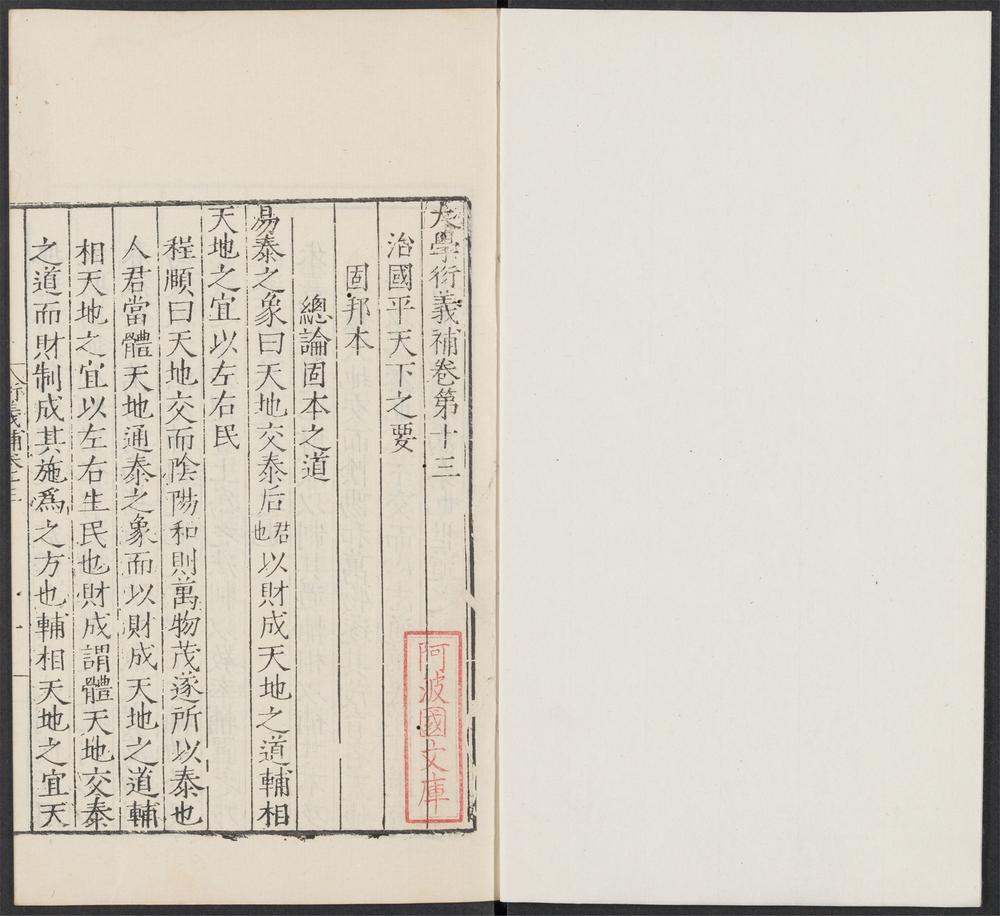 大學衍義補卷第十三
治國平天下之要
固邦本
總論固本之道
易泰之象曰天地交泰后君也以財成天地之道輔相
天地之宜以左右民
程頤曰天地交而陰陽和則萬物茂遂所以泰也
人君當體天地通泰之象而以財成天地之道輔
相天地之宜以左右生民也財成謂體天地交泰
之道而財制成其施爲之方也輔相天地之宜天
阿波國文庫